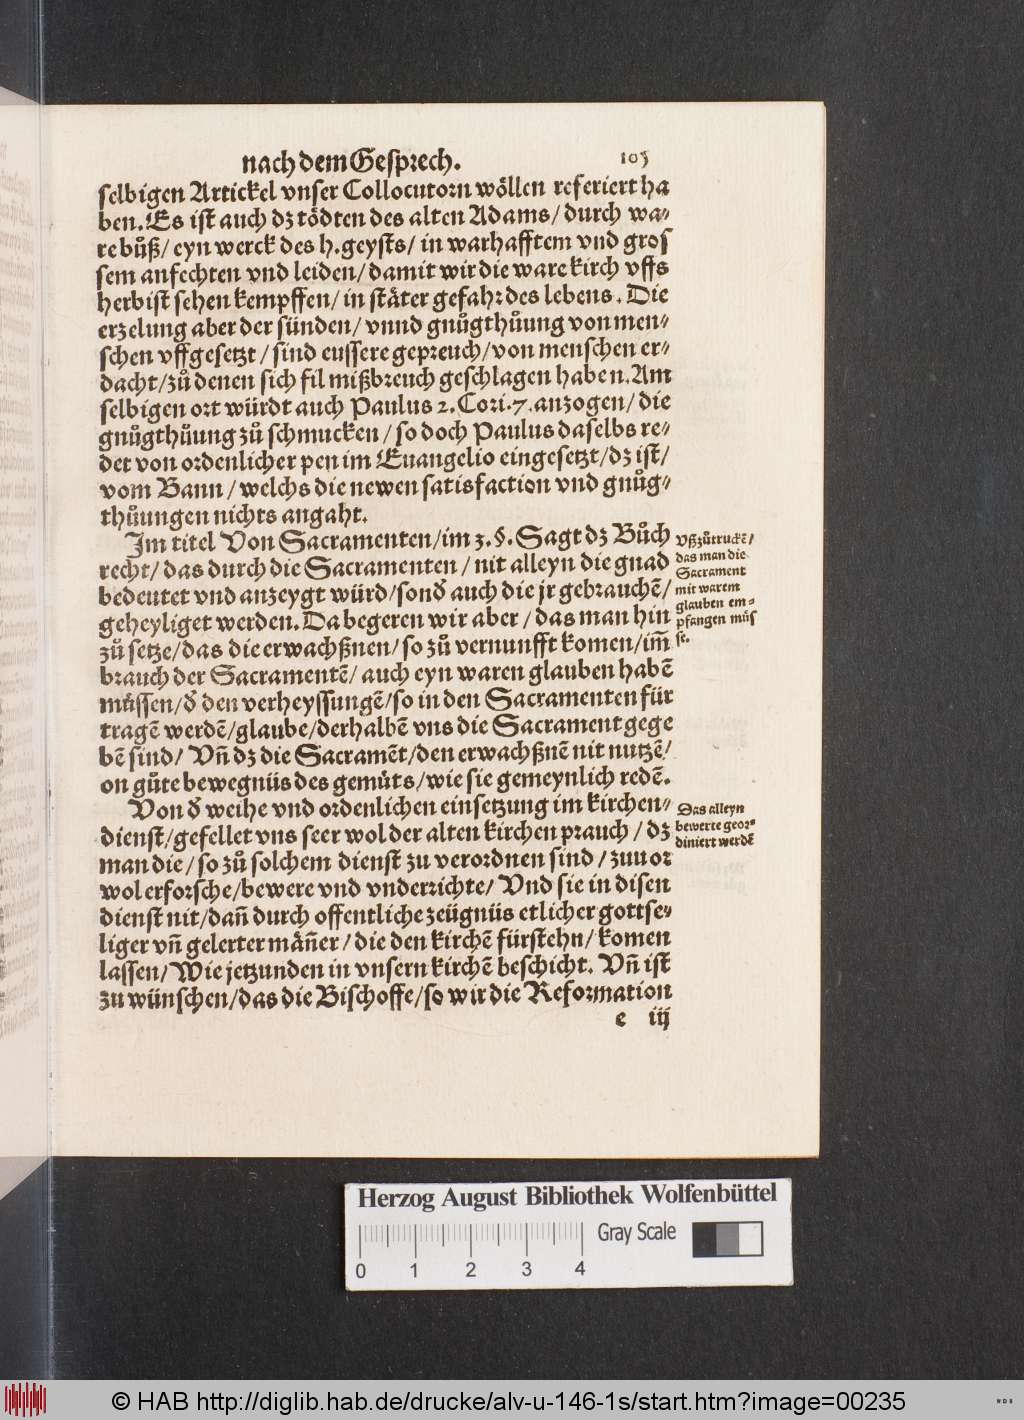 nach dem Gesprech. 105
selbigen Artickel vnser Collocutorn wöllen referiert ha
ben. Es ist auch dz tödten des alten Adams/ durch wa⸗
re bůß/ eyn werck des h. geysts/ in warhafftem vnd gros
sem anfechten vnd leiden/ damit wir die ware kirch vffs
herbist sehen kempffen/ in stäter gefahr des lebens. Die
erzelung aber der sünden/ vnnd gnůgthůung von men⸗
schen vffgesetzt / sind eussere gepreuch/ von menschen er⸗
dacht/ zů denen sich fil mißbreuch geschlagen haben. Am
selbigen ort würdt auch Paulus 2. Cori. 7. anzogen/ die
gnůgthůung zů schmucken / so doch Paulus daselbs re⸗
det von ordenlicher pen im Euangelio eingesetzt/ dz ist/
vom Bann / welchs die newen satisfaction vnd gnůg⸗
thůungen nichts angaht.
Im titel Von Sacramenten/ im 3. §. Sagt dz Bůch
recht/ das durch die Sacramenten / nit alleyn die gnad
bedeutet vnd anzeygt würd/ sonđ auch die jr gebrauchē/
geheyliget werden. Da begeren wir aber / das man hin
zů setze/ das die erwachßnen/ so zů vernunfft komen/ im̄
brauch der Sacramentē/ auch eyn waren glauben habē
müssen/ đ den verheyssungē/ so in den Sacramenten für
tragē werdē/ glaube/ derhalbē vns die Sacrament gege
bē sind/ Vñ dz die Sacramēt/ den erwachßnē nit nutzē/
on gůte bewegnüs des gemůts/ wie sie gemeynlich redē.
Von đ weihe vnd ordenlichen einsetzung im kirchen⸗
dienst/ gefellet vns seer wol der alten kirchen prauch / dz
man die/ so zů solchem dienst zu verordnen sind / zuuor
wol erforsche/ bewere vnd vnderrichte/ Vnd sie in disen
dienst nit/ dañ durch offentliche zeügnüs etlicher gottse⸗
liger vñ gelerter mäñer / die den kirchē fürstehn/ komen
lassen/ Wie jetzunden in vnsern kirchē beschicht. Vñ ist
zu wünschen/ das die Bischoffe/ so wir die Reformation
e iij
vßzůtruckē/
das man die
Sacrament
mit warem
glauben em⸗
pfangen müs
se.
Das alleyn
bewerte geor⸗
diniert werdē
Herzog August Bibliothek Wolfenbüttel
Gray Scale
0 1 2 3 4
© HAB http://diglib.hab.de/drucke/alv-u-146-1s/start.htm?image=00235